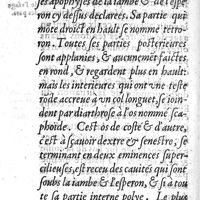 ses apophyses de la iambe & de l'espe
ron cy dessus declarees. Sa partie qui
môte droict en hault se nomme tetro-
ron. Toutes ses parties posterieures
sont applanies, & aucunemēt faictes
en rond, & regardent plus en hault:
mais les interieures qui ont vne teste
rōde accreüe a vn col longuet, se ioin
ent par diarthrose à l'os nommé sca-
phoide. C'est os de costé & d'autre,
c'est à sçauoir dextre & senestre, se
terminant en deux eminences super-
cilieuses, est receu des cauités qui sont
soubs la iambe & l'esperon, & si a tou
te sa partie interne polye. Le plus